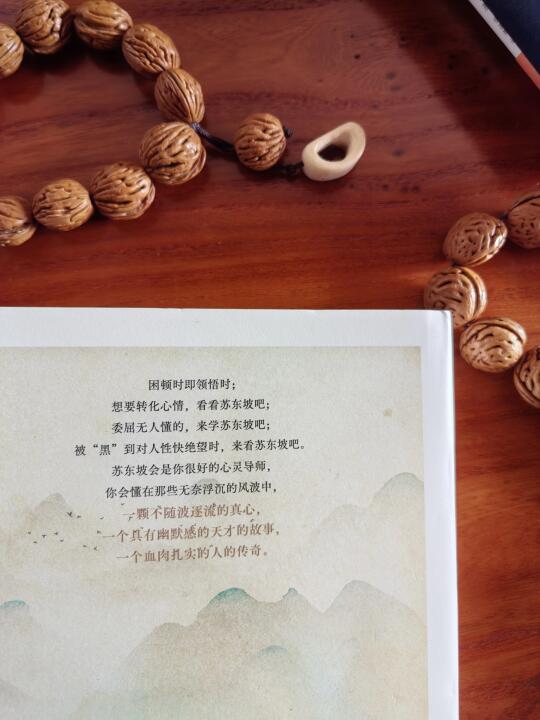 困顿时即领悟时；
想要转化心情，看看苏东坡吧；
委屈无人懂的，来学苏东坡吧；
被“黑”到对人性快绝望时，来看苏东坡吧。
苏东坡会是你很好的心灵导师，
你会懂在那些无奈浮沉的风波中，
一颗不随波逐流的真心，
一个具有幽默感的天才的故事，
一个血肉扎实的人的传奇。